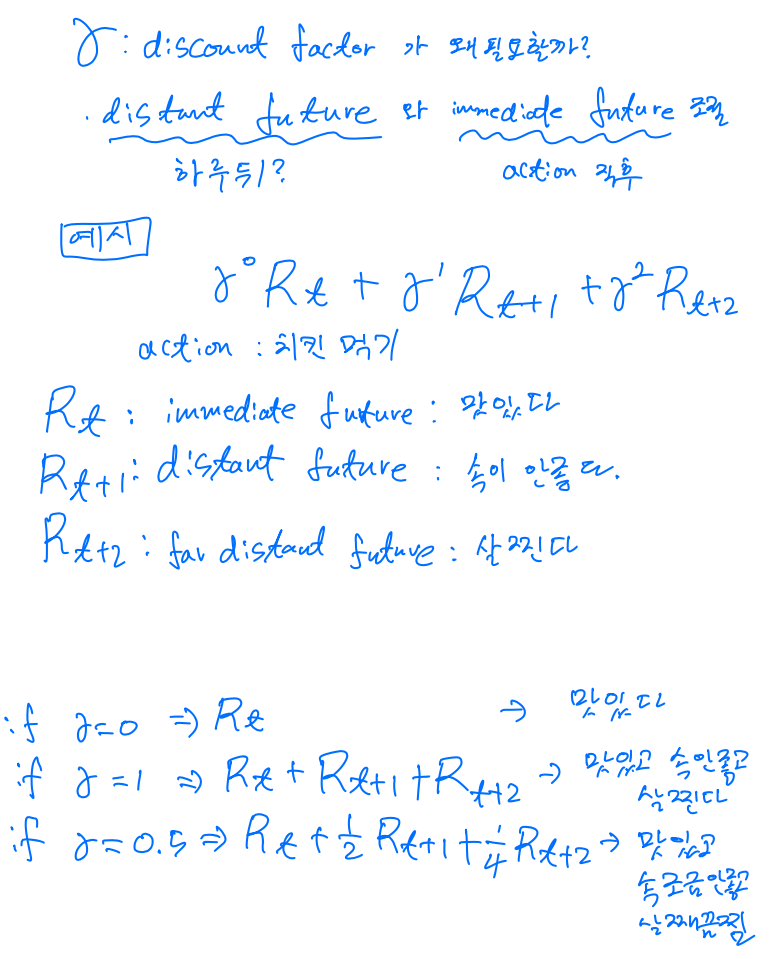 γ : discount factor 가 왜 필요할까?
. distant future 와 immediate future 조절
하루 뒤? action 직후
예시
γ⁰Rₜ + γ¹Rₜ₊₁ + γ²Rₜ₊₂
action : 치킨 먹기
Rₜ : immediate future : 맛있다
Rₜ₊₁ : distant future : 속이 안좋다.
Rₜ₊₂ : far distant future : 살찐다
if γ=0 ⇒ Rₜ → 맛있다
if γ=1 ⇒ Rₜ + Rₜ₊₁ + Rₜ₊₂ → 맛있고 속안좋고
살찐다
if γ=0.5 ⇒ Rₜ + ½ Rₜ₊₁ + ¼ Rₜ₊₂ → 맛있고
속 조금 안좋고